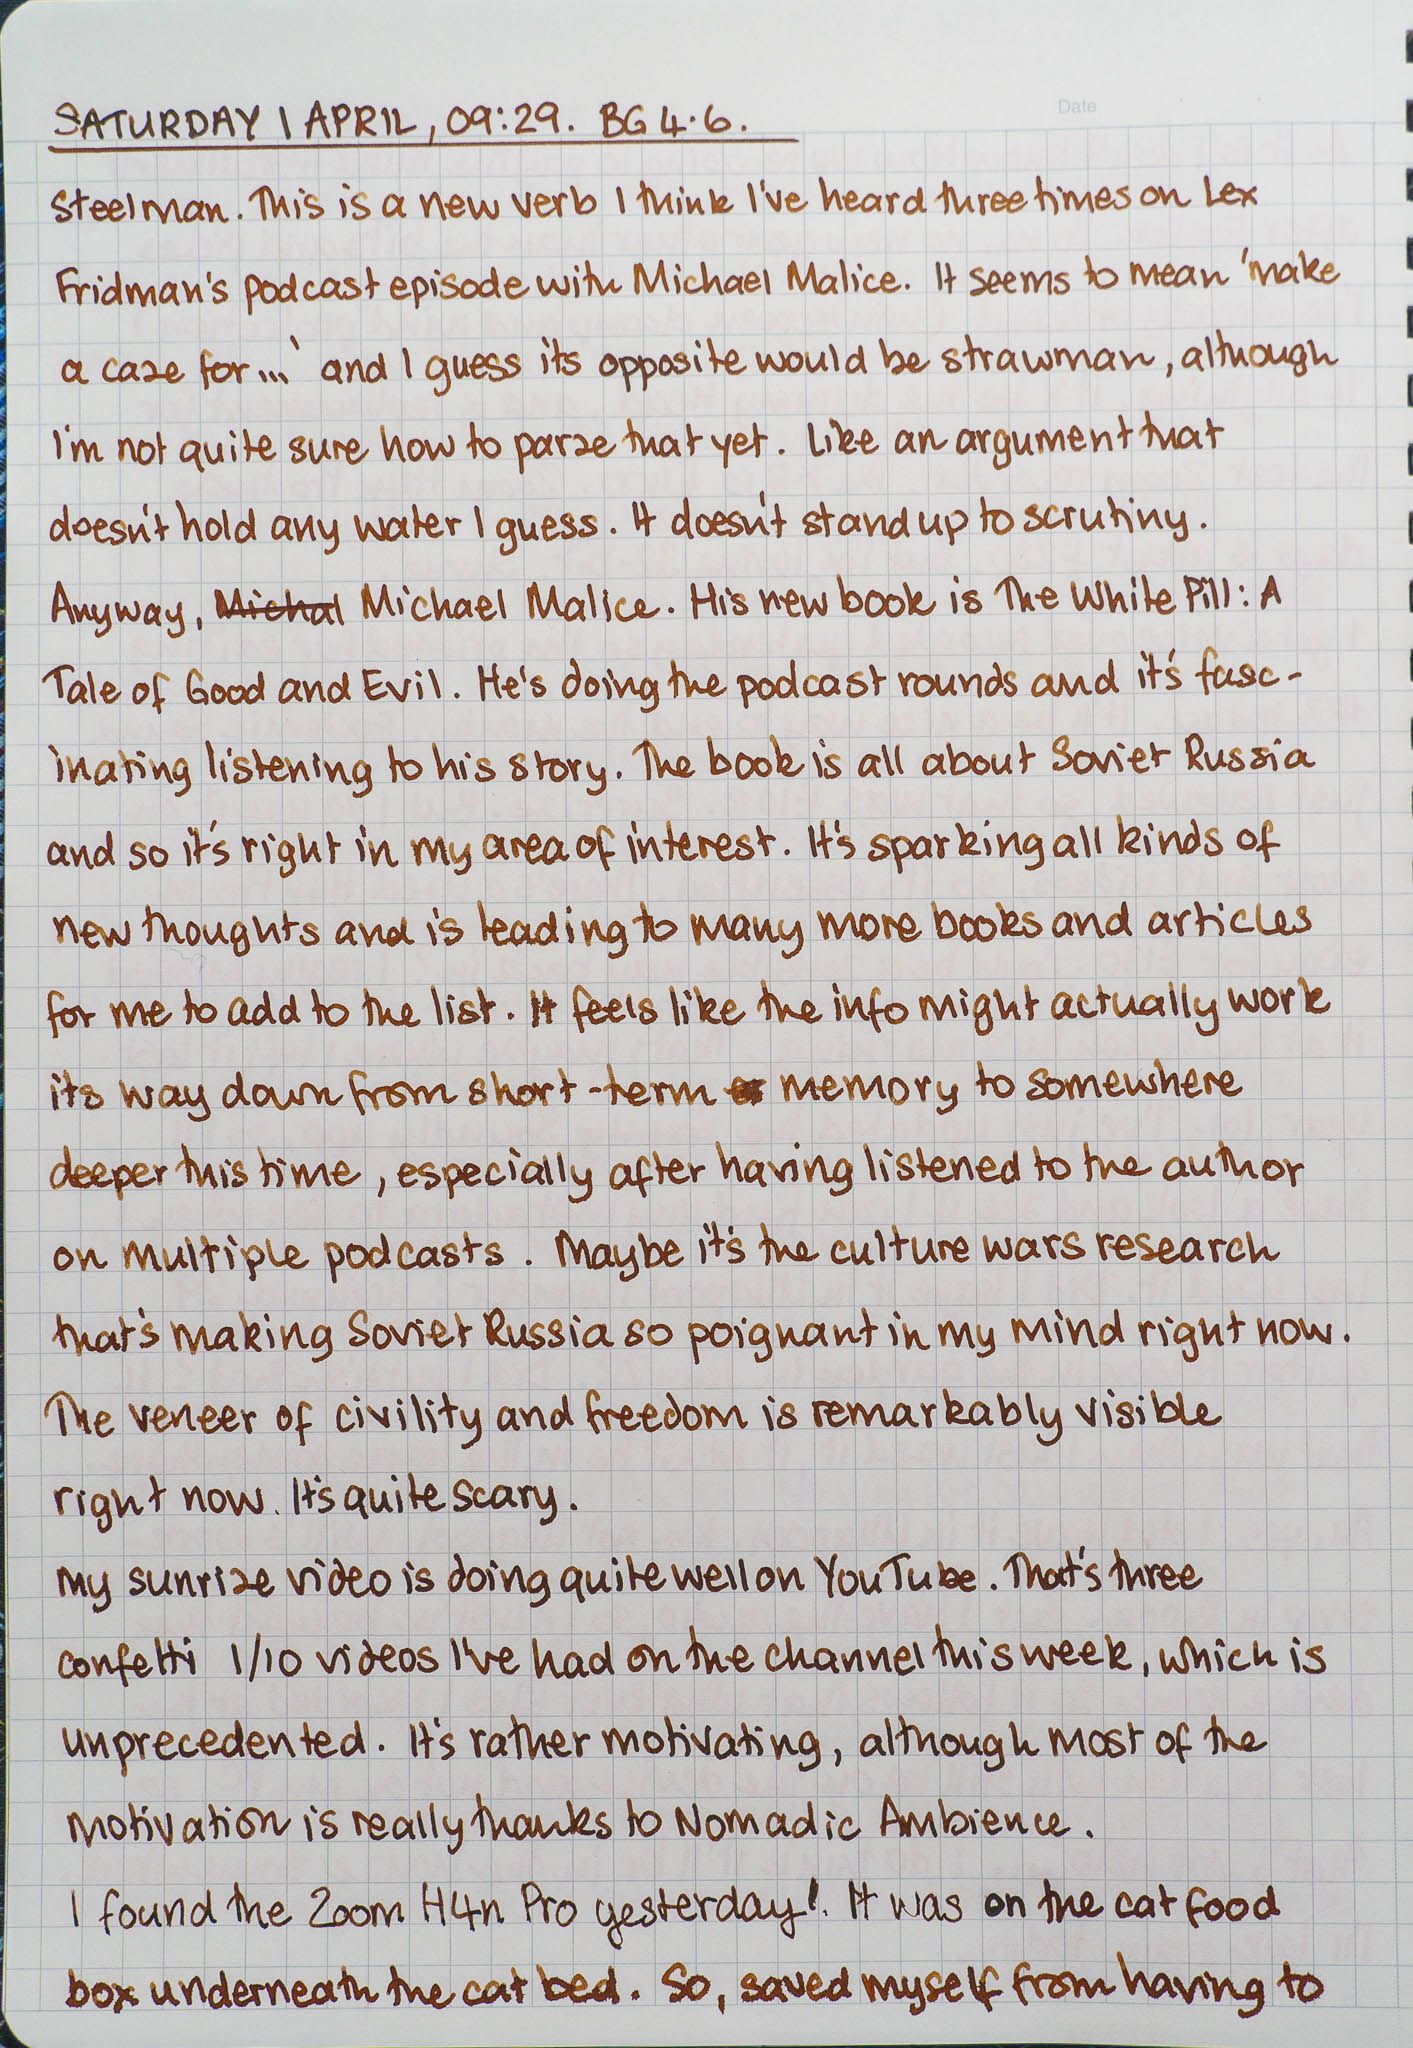 Date
SATURDAY 1 APRIL, 09:29. BG 4.6.
Steelman. This is a new verb I think I've heard three times on Lex
Fridman's podcast episode with Michael Malice. It seems to mean 'make
a case for...' and I guess its opposite would be strawman, although
I'm not quite sure how to parse that yet. Like an argument that
doesn't hold any water I guess. It doesn't stand up to scrutiny.
Anyway, Michal Michael Malice. His new book is The White Pill: A
Tale of Good and Evil. He's doing the podcast rounds and it's fasc-
inating listening to his story. The book is all about Soviet Russia
and so it's right in my area of interest. It's sparking all kinds of
new thoughts and is leading to many more books and articles
for me to add to the list. It feels like the info might actually work
its way down from short-term memory to somewhere
deeper this time, especially after having listened to the author
on multiple podcasts. Maybe it's the culture wars research
that's making Soviet Russia so poignant in my mind right now.
The veneer of civility and freedom is remarkably visible
right now. It's quite scary.
My sunrise video is doing quite well on YouTube. That's three
confetti 1/10 videos I've had on the channel this week, which is
unprecedented. It's rather motivating, although most of the
motivation is really thanks to Nomadic Ambience.
I found the Zoom H4n Pro yesterday! It was on the cat food
box underneath the cat bed. So, saved myself from having to